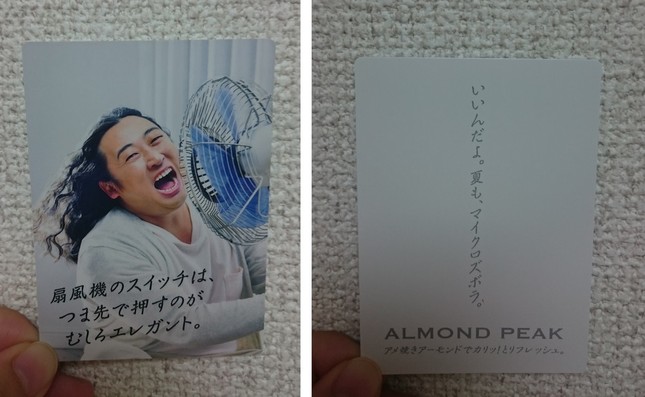 扇風機のスイッチは、
つま先で押すのが
むしろエレガント。
いいんだよ。夏も、マイクロズボラ。
ALMOND PEAK
アメ焼きアーモンドでカリッ！とリフレッシュ。